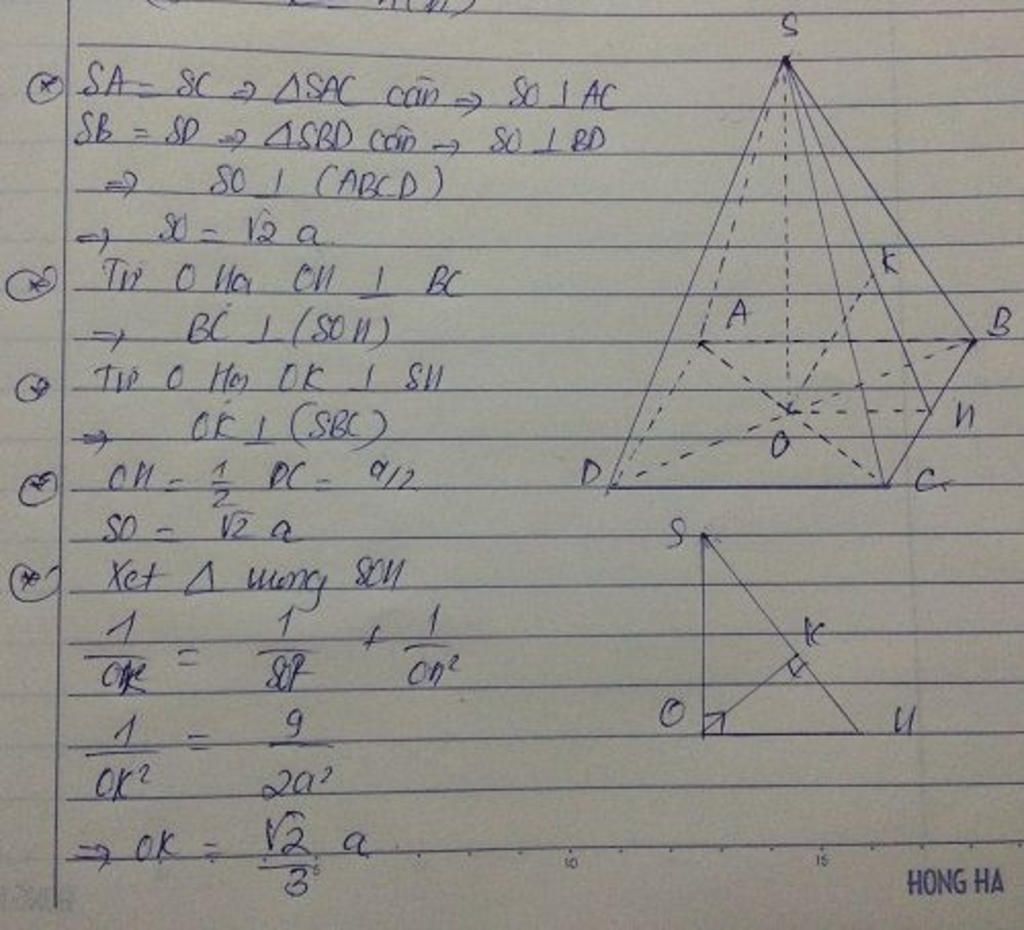 SA = SC ⇒ ΔSAC cân ⇒ SO ⊥ AC
SB = SD ⇒ ΔSBD cân → SO ⊥ BD
⇒ SO ⊥ (ABCD)
⇒ SO = √2 a
Từ O Hạ OH ⊥ BC
⇒ BC ⊥ (SOH)
Từ O Hạ OK ⊥ SH
⇒ OK ⊥ (SBC)
OH = 1/2 DC = a/2
SO = √2 a
Xét Δ vuông SOH
1/OK² = 1/SO² + 1/OH²
1/OK² = 9/2a²
⇒ OK = √2/3 a
S
K
A
B
H
O
D
C
S
K
O
H
10
15
HONG HA